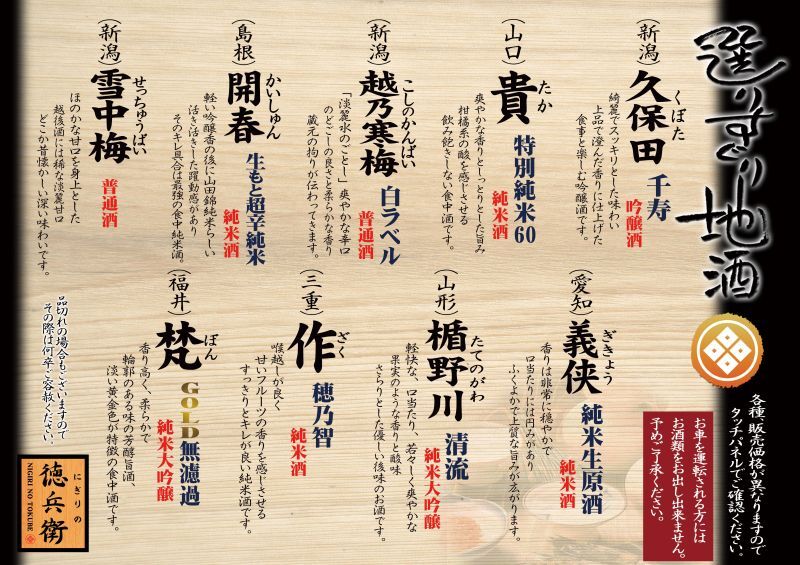 選りすぐり地酒
各種、販売価格が異なりますので
タッチパネルでご確認ください。
お車を運転される方には
お酒類をお出し出来ません。
予めご了承ください。
(新潟)
久保田
くぼた
千寿
吟醸酒
綺麗でスッキリとした味わい
上品で澄んだ香りに仕上げた
食事と楽しむ吟醸酒です。
(山口)
貴
たか
特別純米60
純米酒
爽やかな香りとしっとりとした旨み
柑橘系の酸を感じさせる
飲み飽きしない食中酒です。
(新潟)
越乃寒梅
こしのかんばい
白ラベル
普通酒
「淡麗水のごとし」爽やかな辛口
のどごしの良さと柔らかな香り
蔵元の拘りが伝わってきます。
(島根)
開春
かいしゅん
生もと超辛純米
純米酒
軽い吟醸香の後に山田錦純米らしい
活き活きした躍動感があり
そのキレ具合は最強の食中純米酒。
(新潟)
雪中梅
せっちゅうばい
普通酒
ほのかな甘口を身上とした
越後酒には稀な淡麗甘口
どこか昔懐かしい深い味わいです。
(愛知)
義侠
ぎきょう
純米生原酒
純米酒
香りは非常に穏やかで
口当たりには円みがあり
ふくよかで上質な旨みが広がります。
(山形)
楯野川
たてのがわ
清流
純米大吟醸
軽快な、口当たり、若々しく爽やかな
果実のような香りと酸味
さらりとした優しい後味のお酒です。
(三重)
作
ざく
穂乃智
純米酒
喉越しが良く
甘いフルーツの香りを感じさせる
すっきりとキレが良い純米酒です。
(福井)
梵
ぼん
GOLD無濾過
純米大吟醸
香り高く、柔らかで
輪郭のある味の芳醇旨酒、
淡い黄金色が特徴の食中酒です。
品切れの場合もございますので
その際は何卒ご容赦ください。
にぎりの
徳兵衛
NIGIRI NO TOKUBE